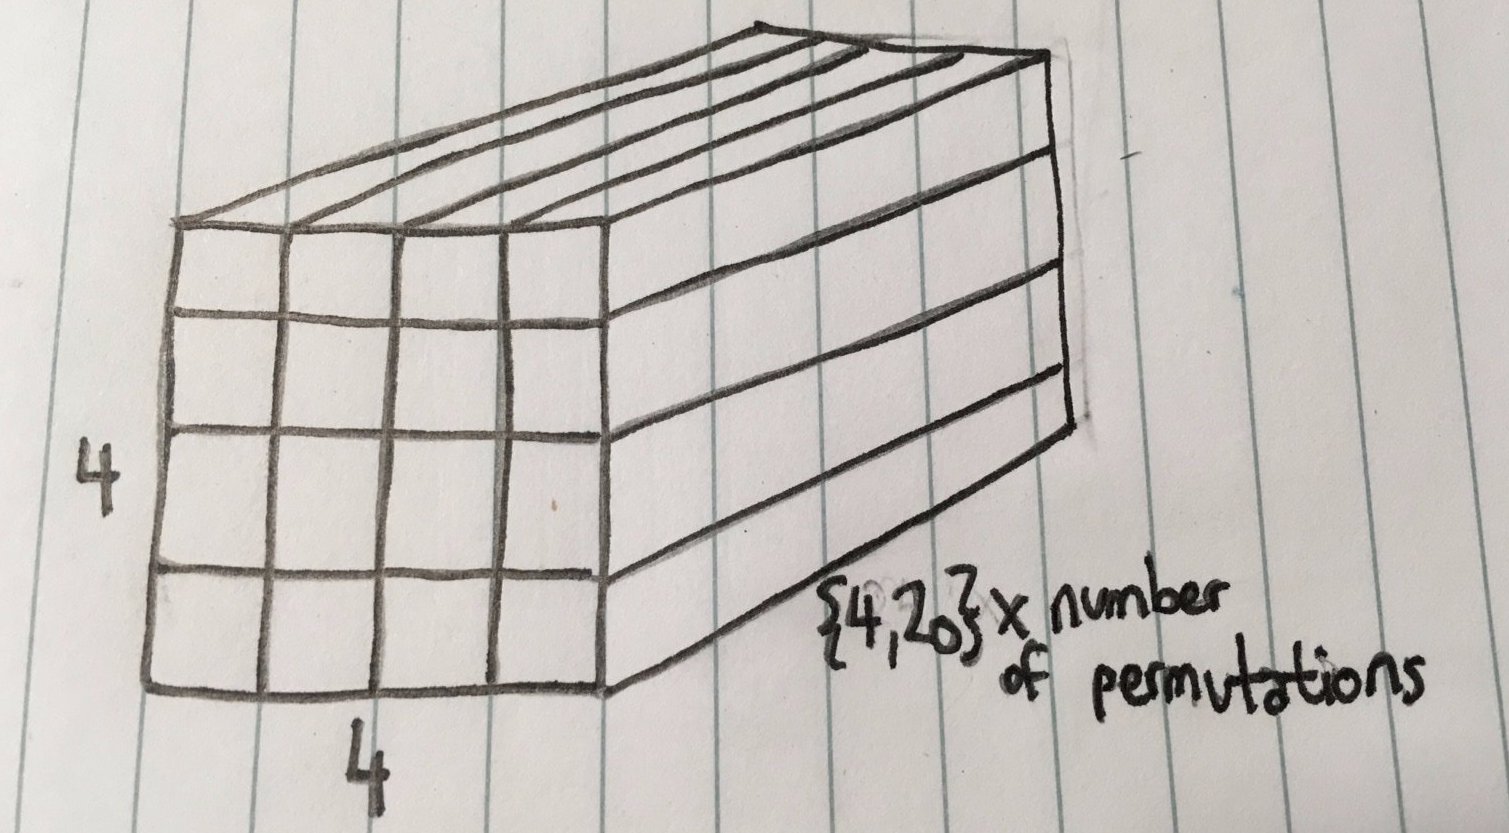 4
{4,20} x number
of permutations
4